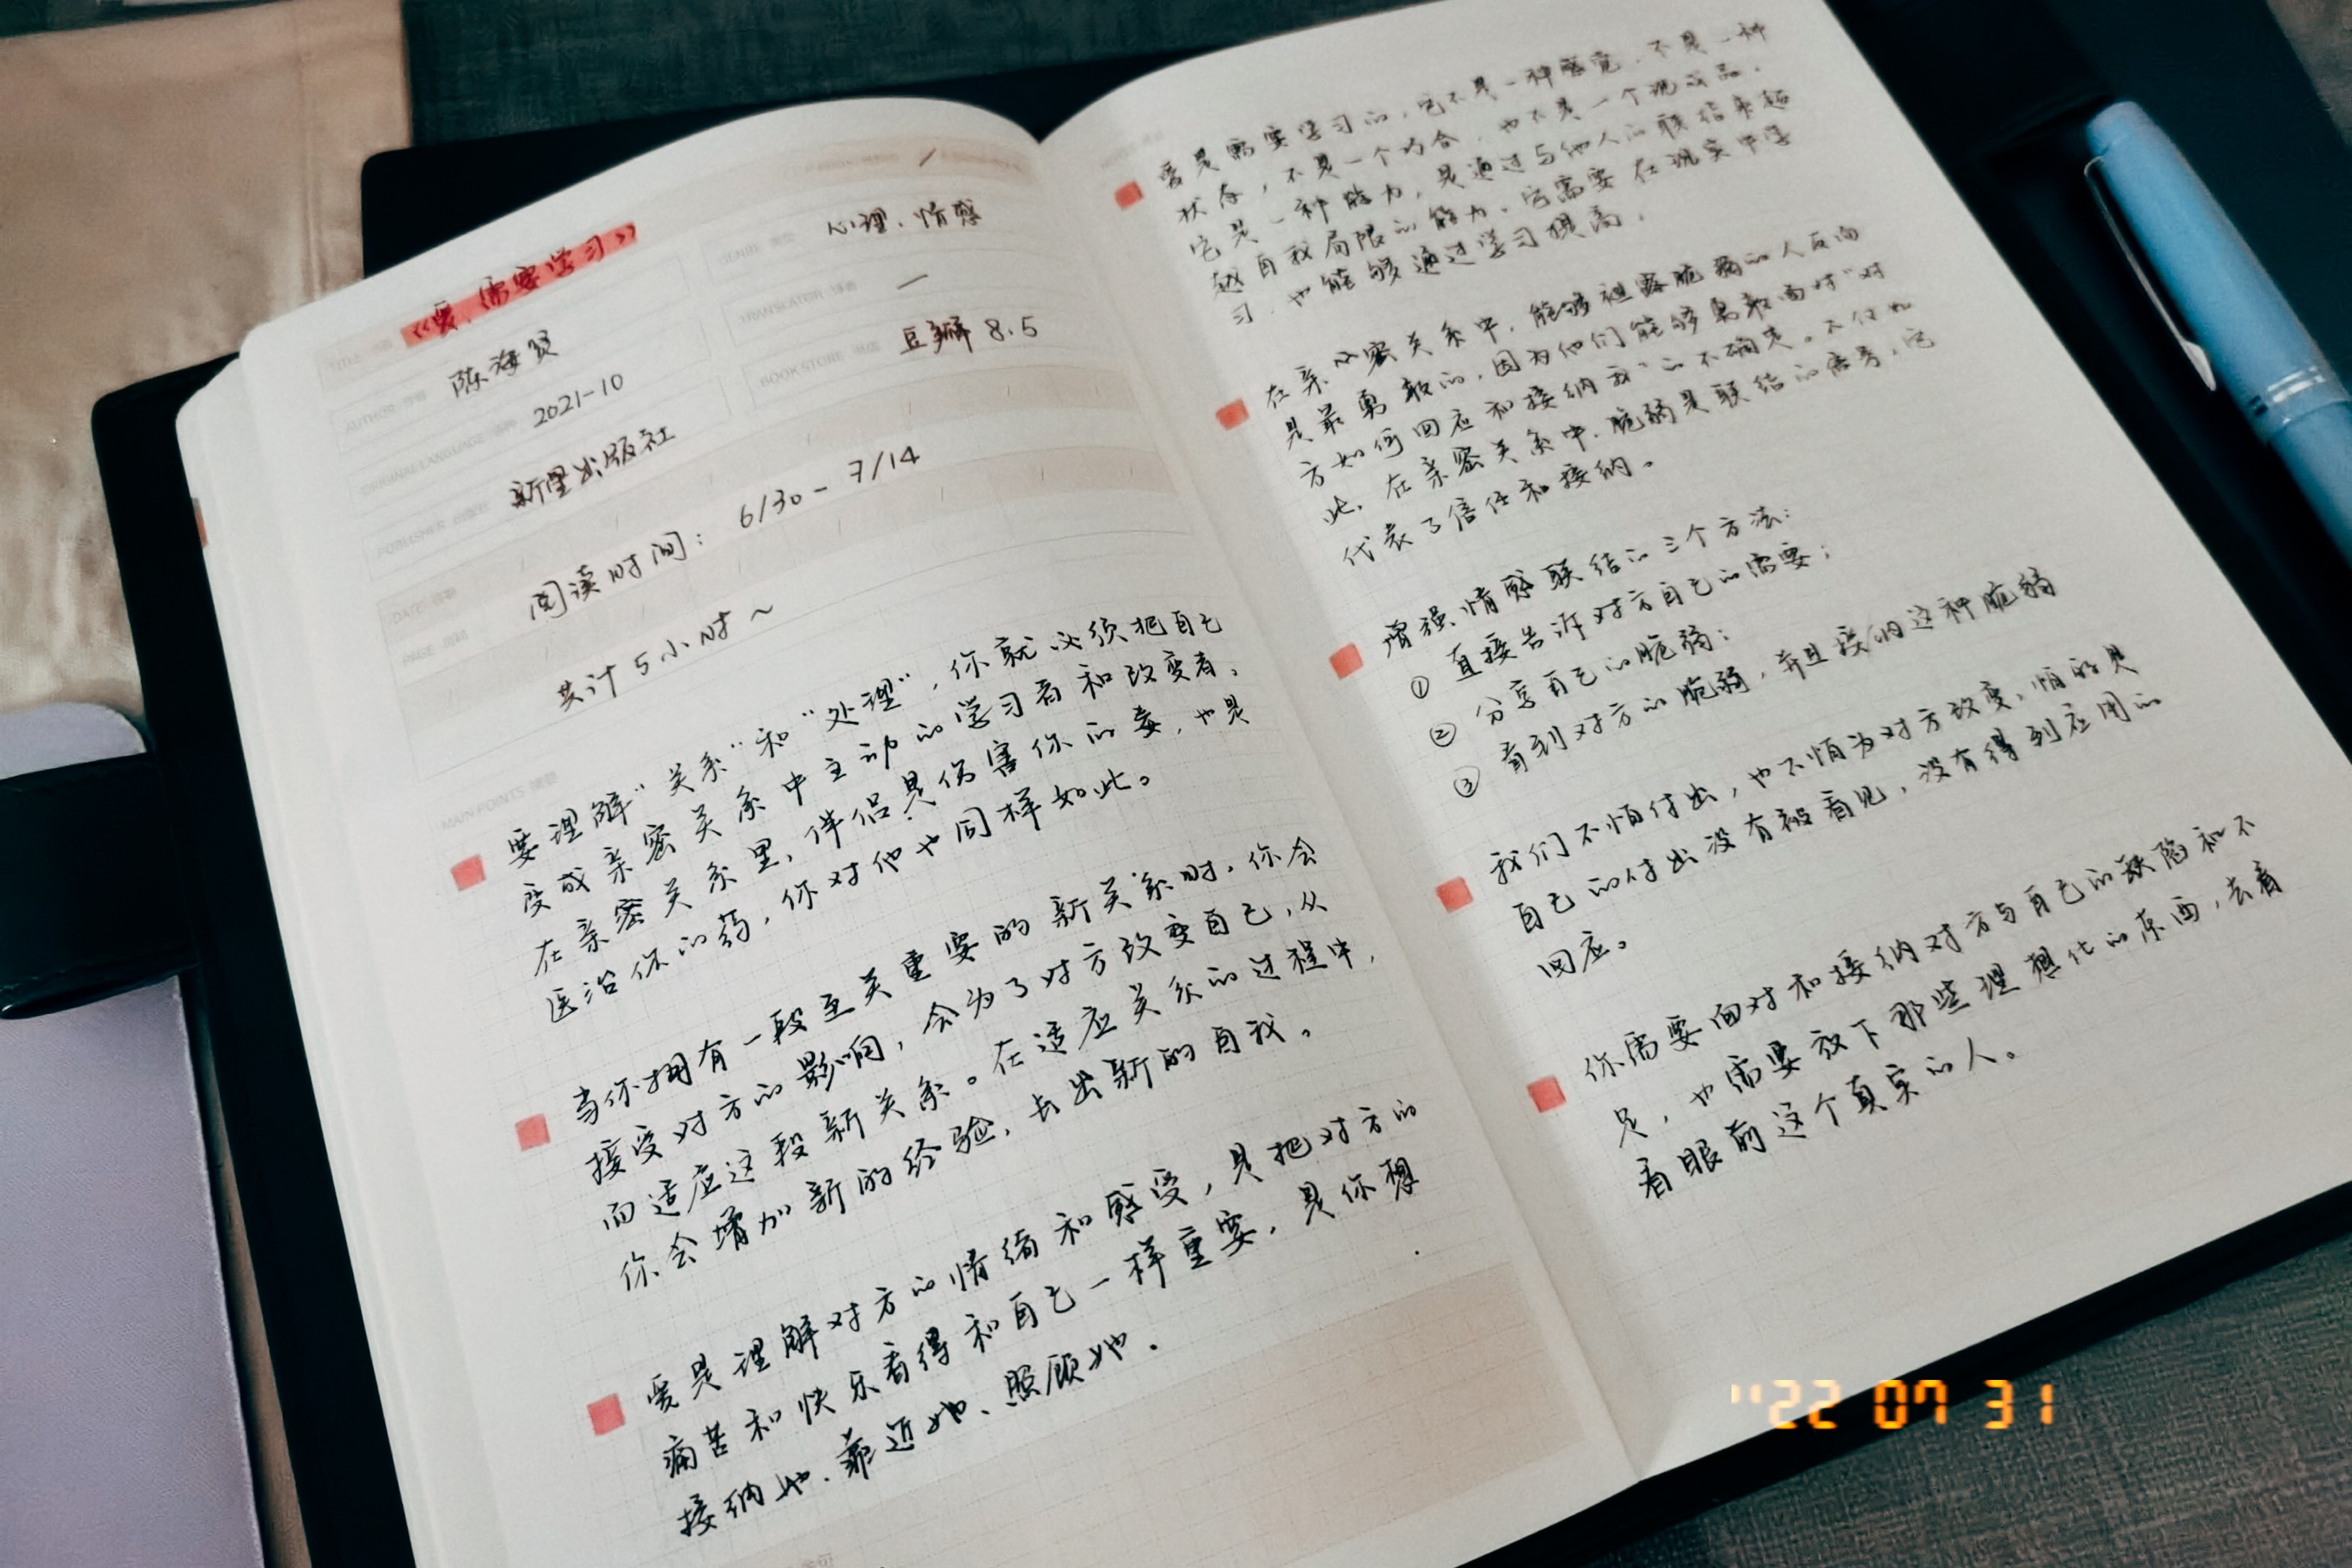 《爱,需要学习》
心理、情感
AUTHOR
陈海贤
TRANSLATOR
一
ORIGINAL LANGUAGE
2021-10
BOOK STORE
豆瓣 8.5
PUBLISHER
新星出版社
DATE
阅读时间: 6/30 - 7/14
PAGE
共计5小时~
MAIN POINTS
要理解“关系”和“处理”,你就必须把自己
变成亲密关系中主动的学习者和改变者。
在亲密关系里,伴侣是伤害你的毒,也是
医治你的药,你对他也同样如此。
当你拥有一段至关重要的新关系时,你会
接受对方的影响,会为了对方改变自己,从
而适应这段新关系。在适应关系的过程中,
你会增加新的经验,长出新的自我。
爱是理解对方的情绪和感受,是把对方的
痛苦和快乐看得和自己一样重要,是你想
接纳她、靠近她、照顾她。
爱是需要学习的,它不是一种感觉,不是一种
状态,不是一个为合,也不是一个现成品。
它是一种能力,是通过与他人的联结来超
越自我局限的能力。它需要在现实中学
习,也能够通过学习提高。
在亲密关系中,能够袒露脆弱的人反而
是最勇敢的,因为他们能够勇敢面对“对
方如何回应和接纳我”的不确定。不仅如
此,在亲密关系中,脆弱是联结的信号,它
代表了信任和接纳。
增强情感联结的三个方法:
① 直接告诉对方自己的需要;
② 分享自己的脆弱;
③ 看到对方的脆弱,并且接纳这种脆弱
我们不怕付出,也不怕为对方改变,怕的是
自己的付出没有被看见,没有得到应用的
回应。
你需要面对和接纳对方与自己的缺陷和不
足,也需要放下那些理想化的东西,去看
看眼前这个真实的人。
'22 07 31